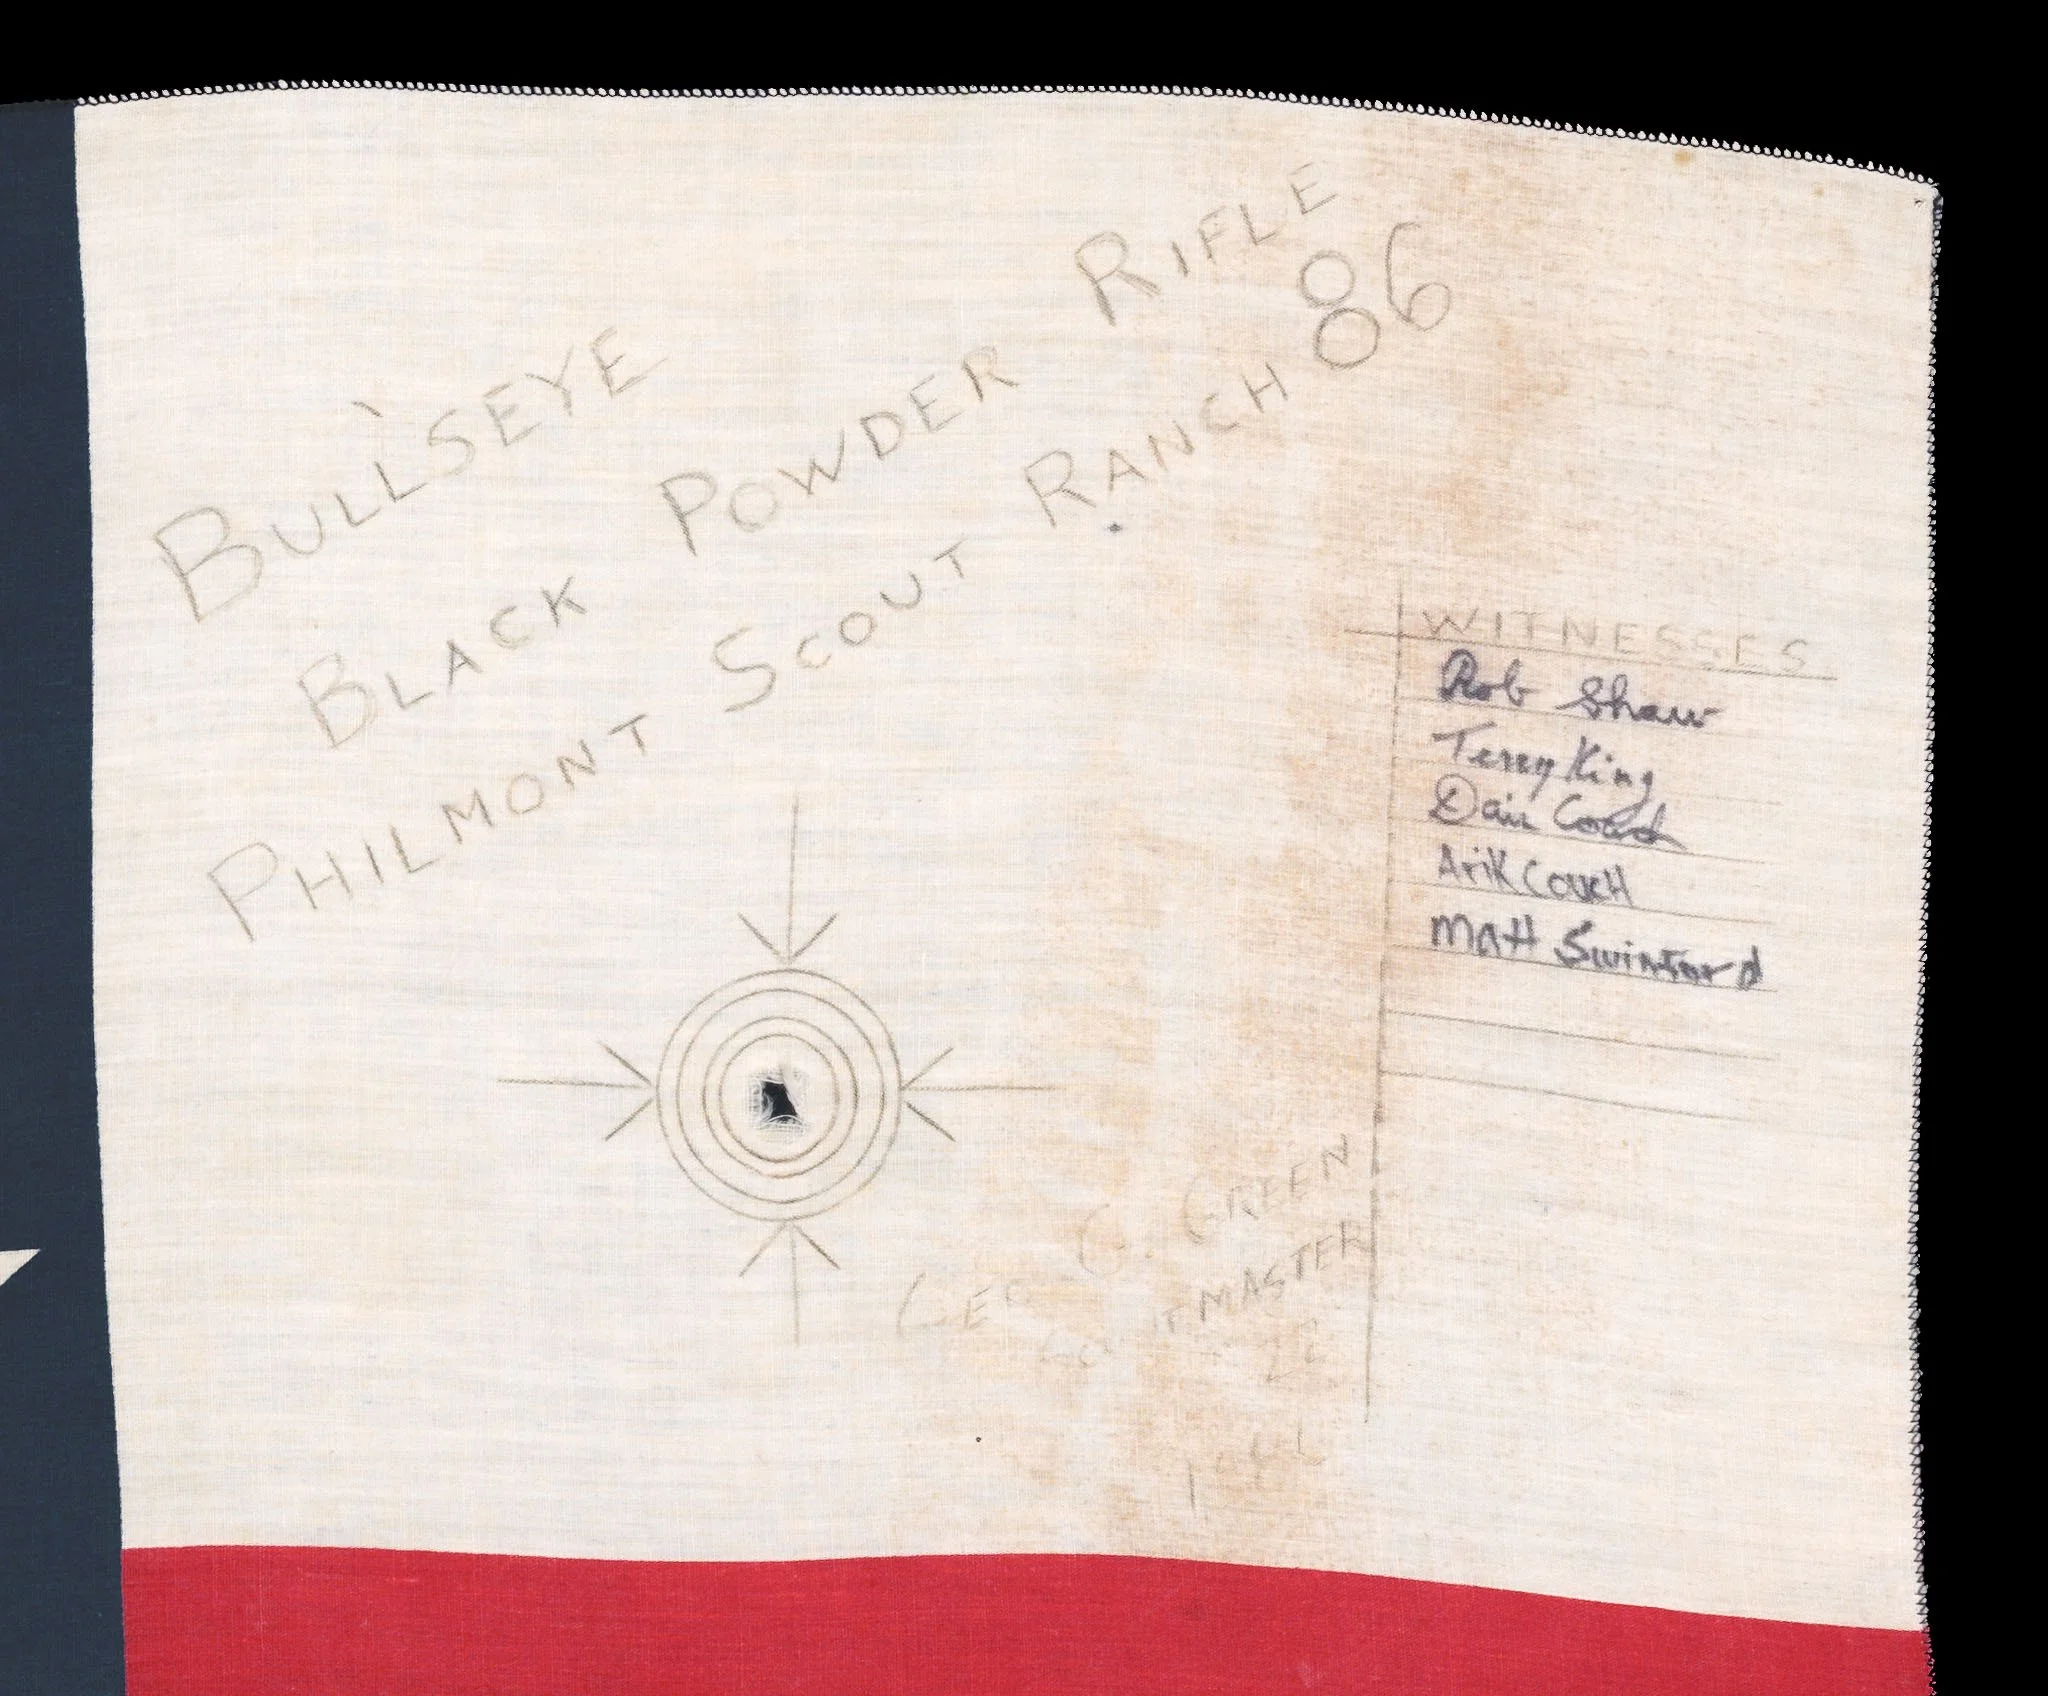 BULL'SEYE
BLACK POWDER RIFLE
PHILMONT SCOUT RANCH 86
WITNESSES
Rob Shaw
Terry King
Dain Couch
Arik Couch
Matt
G. GREEN